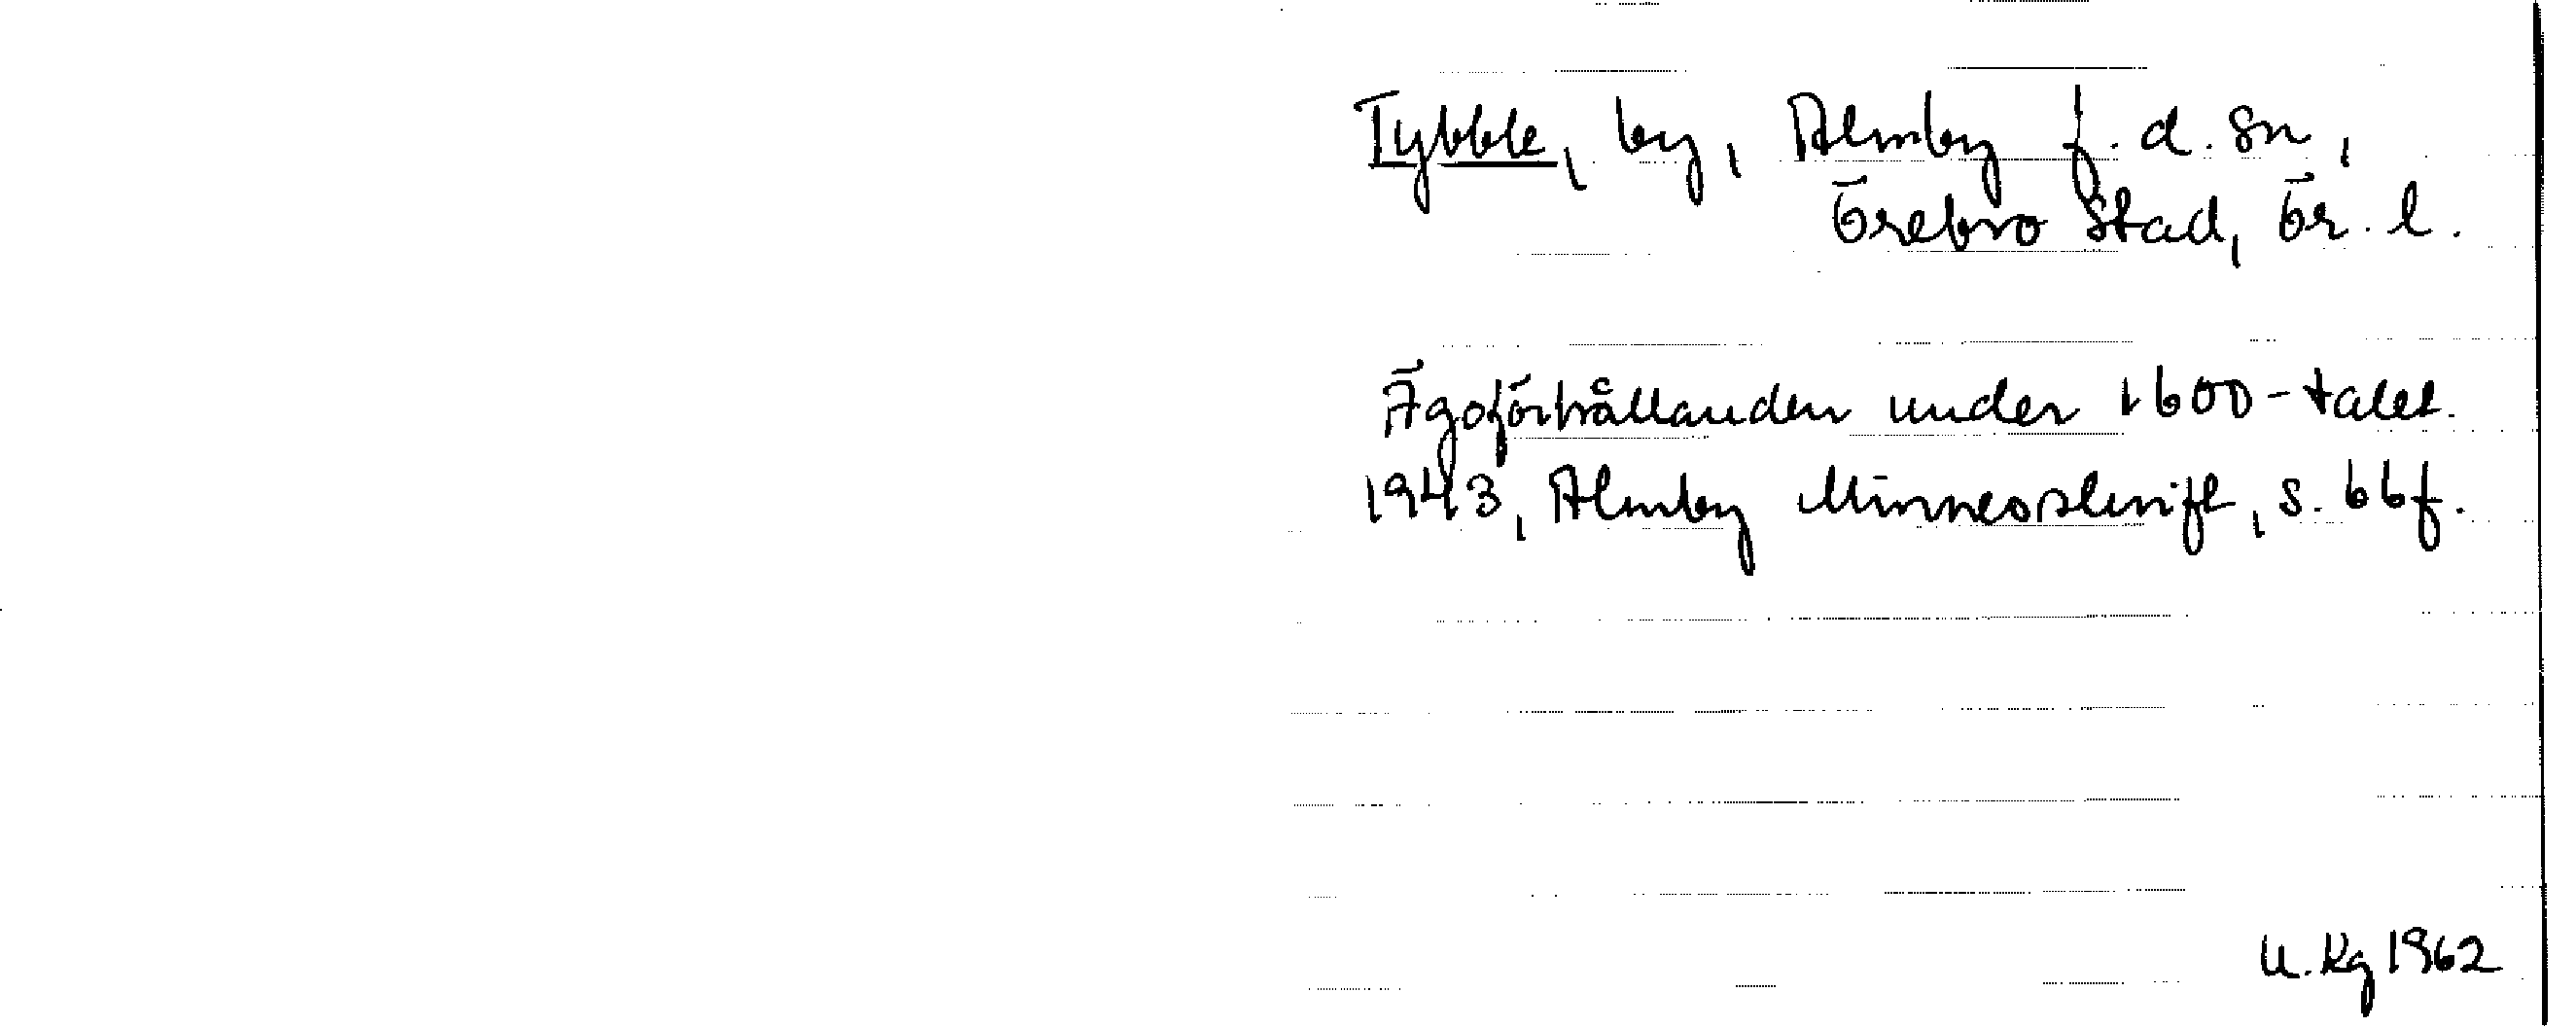 Tybble, by, Almby f.d. sn,
Örebro stad, Ör. l.
Ägoförhållanden under 1600-talet.
1943, Almby Minnesskrift, s. 66f.
U. Kg 1962